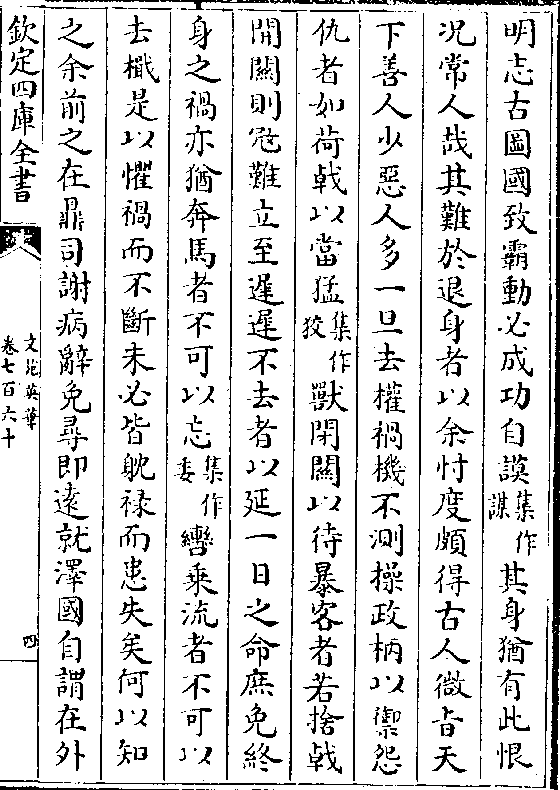 明志古圖國致霸動必成功自謨集作謀其身猶有此恨
况常人哉其難於退身者以余忖度頗得古人微㫖天
下善人少惡人多一旦去權禍機不測操政柄以禦怨
仇者如荷㦸以當猛集作狡獸閉闗以待暴客者若捨㦸
開闗則冦難立至遲遲不去者以延一日之命庶免終
身之禍亦猶奔馬者不可以忘集作委轡乗流者不可以
去檝是以懼禍而不斷未必皆躭禄而患失矣何以知
之余前之在鼎司謝病辭免尋即逺就澤國自謂在外
欽定四庫全書
文苑英華
卷七百六十
四